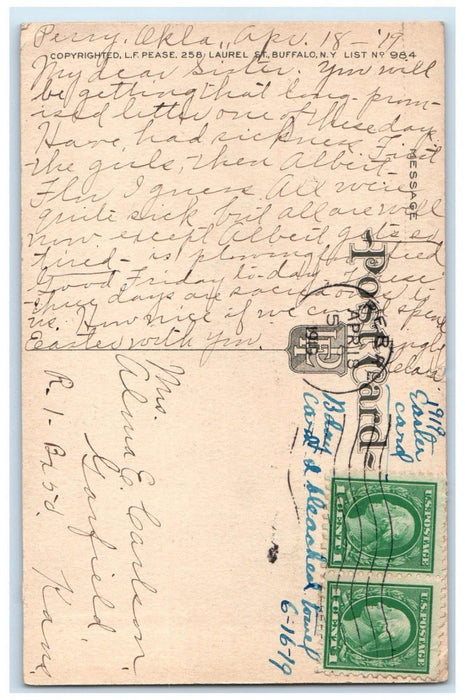 Perry, Okla., Apr. 18 - '19
COPYRIGHTED, L.F. PEASE, 258 LAUREL ST., BUFFALO, N.Y. LIST No 984
My dear Sister. You will
be getting that long prom-
ised letter one of these days.
Have had sickness. First
the girls, then Albert.
Flu, I guess. All were
quite sick but all are well
now except Albert gets so
tired - is plowing
Good Friday to-day. These
three days are so
us. How nice if we could spend
Easter with you.
MESSAGE
Post Card
PERRY
APR 18
1919
1919
Easter
card
Bday
Card & bleached towel
6-16-19
Mrs.
Alma E. Carlson
Garfield,
R. 1 - Kans.
U.S. POSTAGE
1 CENT 1
U.S. POSTAGE
1 CENT 1